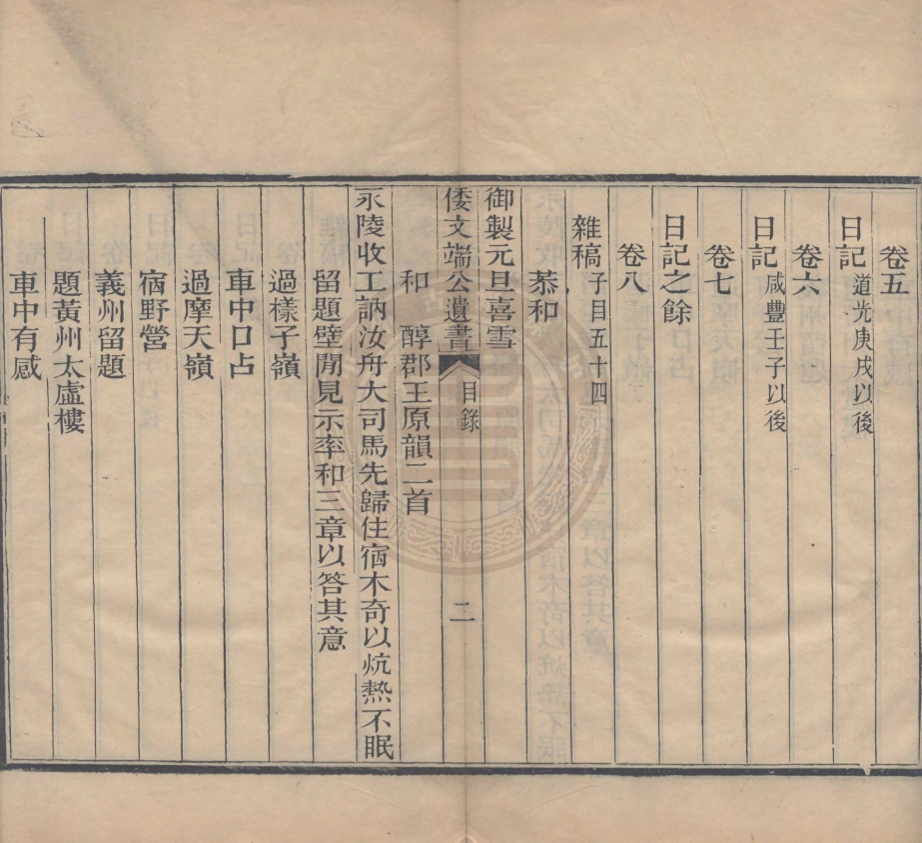 卷五
日記道光庚戌以後
卷六
日記咸豐壬子以後
卷七
日記之餘
卷八
雜稿子目五十四
恭和
御製元旦喜雪
倭文端公遺書 目錄 二
和 醇郡王原韻二首
永陵收工訥汝舟大司馬先歸住宿木奇以炕熱不眠
留題壁閒見示率和三章以答其意
過樣子嶺
車中口占
過摩天嶺
宿野營
義州留題
題黃州太虛樓
車中有感